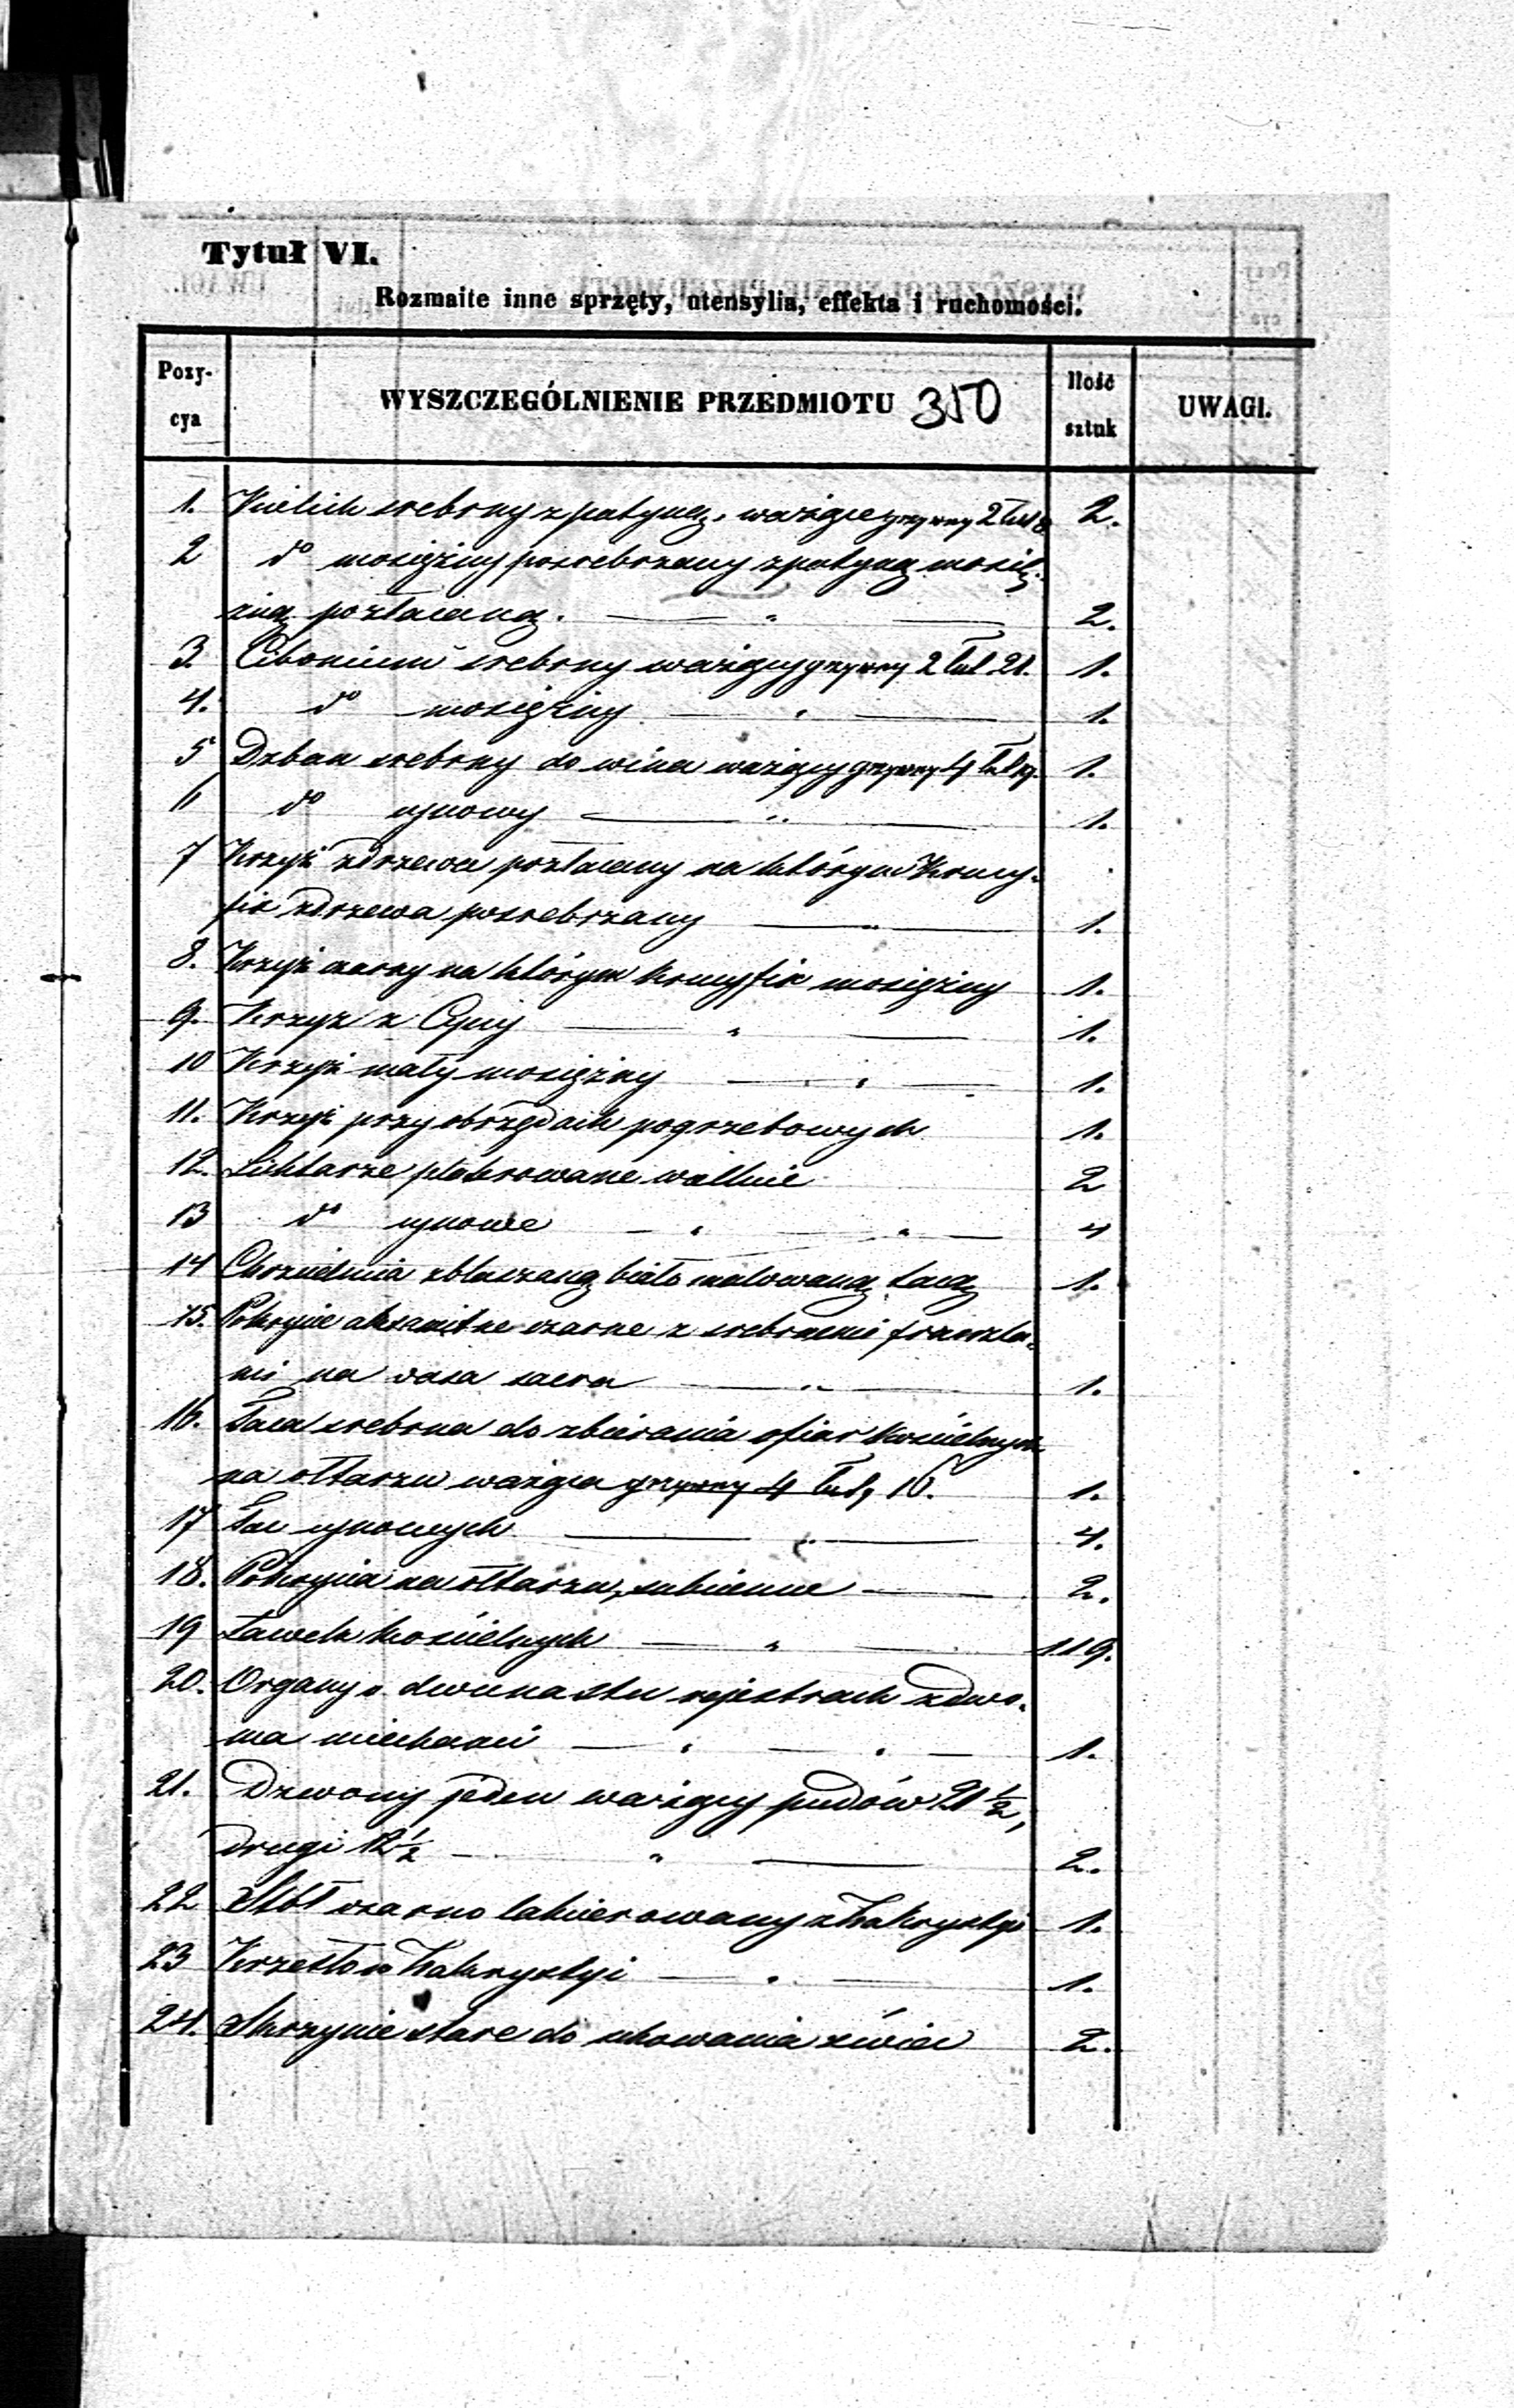 Tytuł VI.
Rozmaite inne sprzęty, utensylia, effekta i ruchomości.
Pozy-
cya
WYSZCZEGÓLNIENIE PRZEDMIOTU 350
Ilość
sztuk
UWAGI.
1. Kielich srebrny z patyną, ważące grzywny 2 łut 8 2.
2 do mosiężny posrebrzany z patyną mosię-
żną pozłacaną. — " — 2.
3. Ciborium srebrny ważący grzywny 2 łut 21. 1.
4. do mosiężny — " — 1.
5 Dzban srebrny do wina ważący grzywny 4 łut 1.
6 do cynowy — " — 1.
7 Krzyż z drzewa pozłacany na którym Krucy-
fix z drzewa posrebrzany — " — 1.
8. Krzyż czarny na którym krucyfix mosiężny 1.
9. Krzyż z Cyny — " — 1.
10 Krzyż mały mosiężny — " — 1.
11. Krzyż przy obrzędach pogrzebowych 1.
12. Lichtarze platerowane wielkie 2
13 do cynowe — " — " — 4
14 Chrzcielnia z blaszaną biało malowaną tacą 1.
15. Pokrycie aksamitne czarne z srebrnemi frenzla-
mi na vasa sacra — " — 1.
16. Taca srebrna do zbierania ofiar kościelnych
na ołtarzu ważąca grzywny 4 łut, 16. 1.
17 Tac cynowych — " — 4.
18. Pokrycia na ołtarzu, sukienne — 2.
19 Ławek kościelnych — " — 119.
20. Organy o dwunastu rejestrach z dwo-
ma miechami — " — " — 1.
21. Dzwony jeden ważący pudów 21 ½,
drugi 12 ½ — " — 2.
22 Stół czarno lakierowany z Zakrystyi 1.
23 Krzesło w Zakrystyi — " — 1.
24. Skrzynie stare do chowania świec 2.